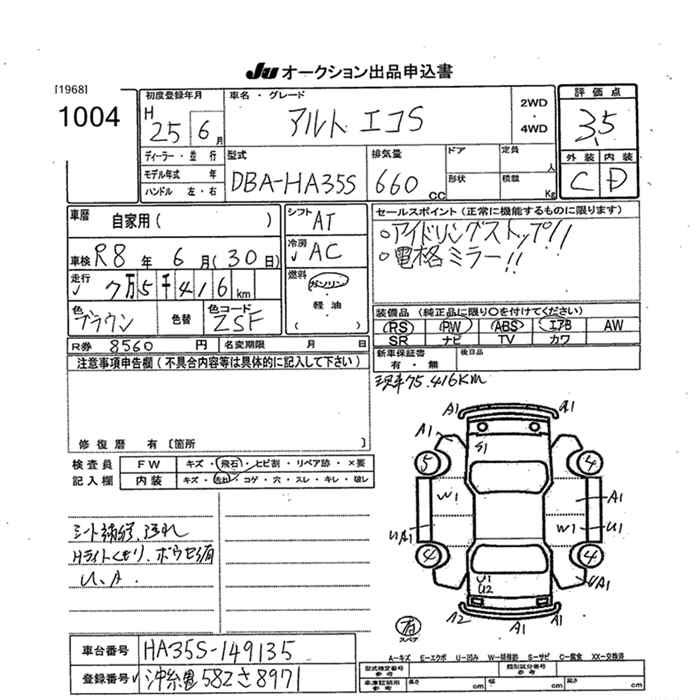 JU オークション出品申込書
[1968]
1004
初度登録年月
H 25 6月
車名・グレード
アルト エコS
2WD
・
4WD
評価点
3.5
外装 内装
C D
ディーラー・並行
モデル年式 年
ハンドル 左・右
型式
DBA-HA35S
排気量
660 cc
ドア
形状
定員 人
積載 Kg
車歴 自家用( )
車検 R8年 6月(30日)
走行 7万5千416km
色 ブラウン
色替
色コード ZSF
シフト AT
冷房 AC
燃料
ガソリン
・
軽油
( )
セールスポイント(正常に機能するものに限ります)
○アイドリングストップ!!
○電格ミラー!!
装備品(純正品に限り○を付けてください)
PS PW ABS エアB AW
SR ナビ TV カワ
R券 8560 円 名変期限 月 日
新車保証書 有・無
後日品
注意事項申告欄(不具合内容等は具体的に記入して下さい)
現車75.416KM
修復歴 有〔箇所 〕
検査員 記入欄
FW キズ・飛石・ヒビ割・リペア跡・×要
内装 キズ・汚れ・コゲ・穴・スレ・キレ・破レ
A1 A1
A1 S1
5 4
W1 A1
UA1 W1 U1
4 4
U1
U2
UA1
A2 A1 A1
シート 汚れ
Hライトくもり、
U、A
有
スペア
A-キズ E-エクボ U-凹み W-補修跡 S-サビ C-腐食 XX-交換済
車台番号 HA35S-149135
登録番号 沖縄 582 さ 8971
型式指定番号 参考
類別区分番号 参考
車庫証明用 参考
長さ cm 幅 cm 高さ cm